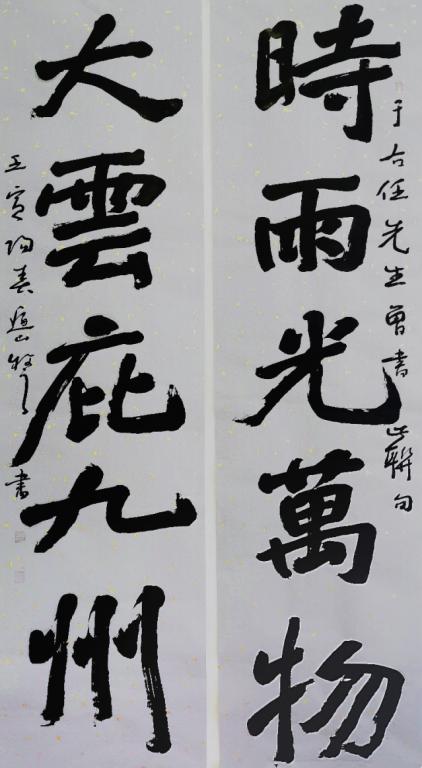 于右任先生曾書此聯句
時雨光萬物
大雲庇九州
壬寅陽春書